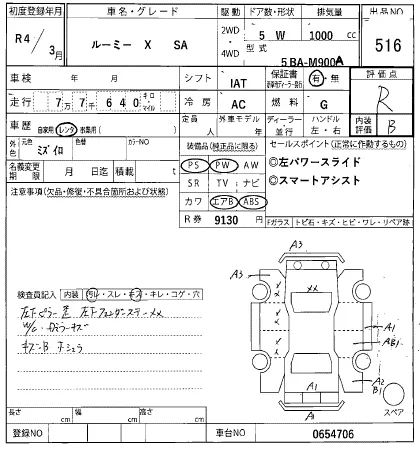 初度登録年月 車名・グレード 駆動 ドア数・形状 排気量 出品NO
R4/3月 ルーミー X SA 2WD・4WD 5 W 1000 cc 516
型式 5BA-M900A
車検 年 月 シフト IAT 保証書 有・無 評価点
走行 7万7千640 キロ・マイル 冷房 AC 燃料 G R
車歴 自家用 レンタ 事業用( ) 定員 人 外車モデル 年 ディーラー・並行 ハンドル 左・右 内装評価 B
外色 元色 ミズイロ 色替 カラーNO 装備品(純正品に限る) セールスポイント(正常に作動するもの)
名義変更期限 月 日迄 積載 t PS PW AW ◎左パワースライド
注意事項(欠品・修復・不具合箇所および状態) SR TV ナビ ◎スマートアシスト
カワ エアB ABS
R券 9130 円 Fガラス トビ石・キズ・ヒビ・ワレ・リペア跡
A3
A3
××
検査員記入 内装 汚レ・スレ・キズ・キレ・コゲ・穴
A1
AB1
キズ
A1
A2
B1
A1
スペア
長さ cm 幅 cm 高さ cm
登録NO 車台NO 0654706